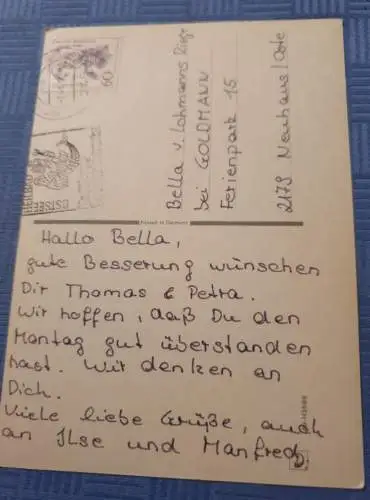 Hallo Bella,
gute Besserung wünschen
Dir Thomas & Petra.
Wir hoffen, daß Du den
Montag gut überstanden
hast. Wir denken an
Dich.
Viele liebe Grüße, auch
an Ilse und Manfred.
Bella v. Lohmanns
bei GOLDMANN
Ferienpark 15
2179 Neuhaus/Oste
60
OSTSEE